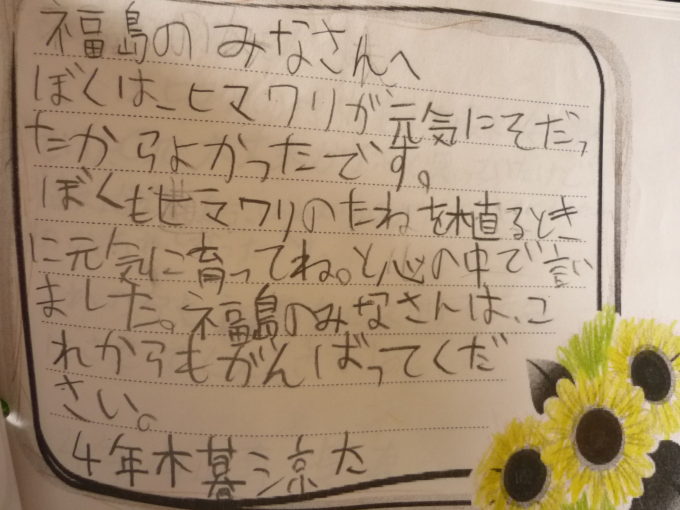 福島のみなさんへ
ぼくは、ヒマワリが元気にそだっ
たからよかったです。
ぼくもヒマワリのたねを植るとき
に元気に育ってね。と心の中で言い
ました。福島のみなさんは、こ
れからもがんばってくだ
さい。
4年木暮涼太